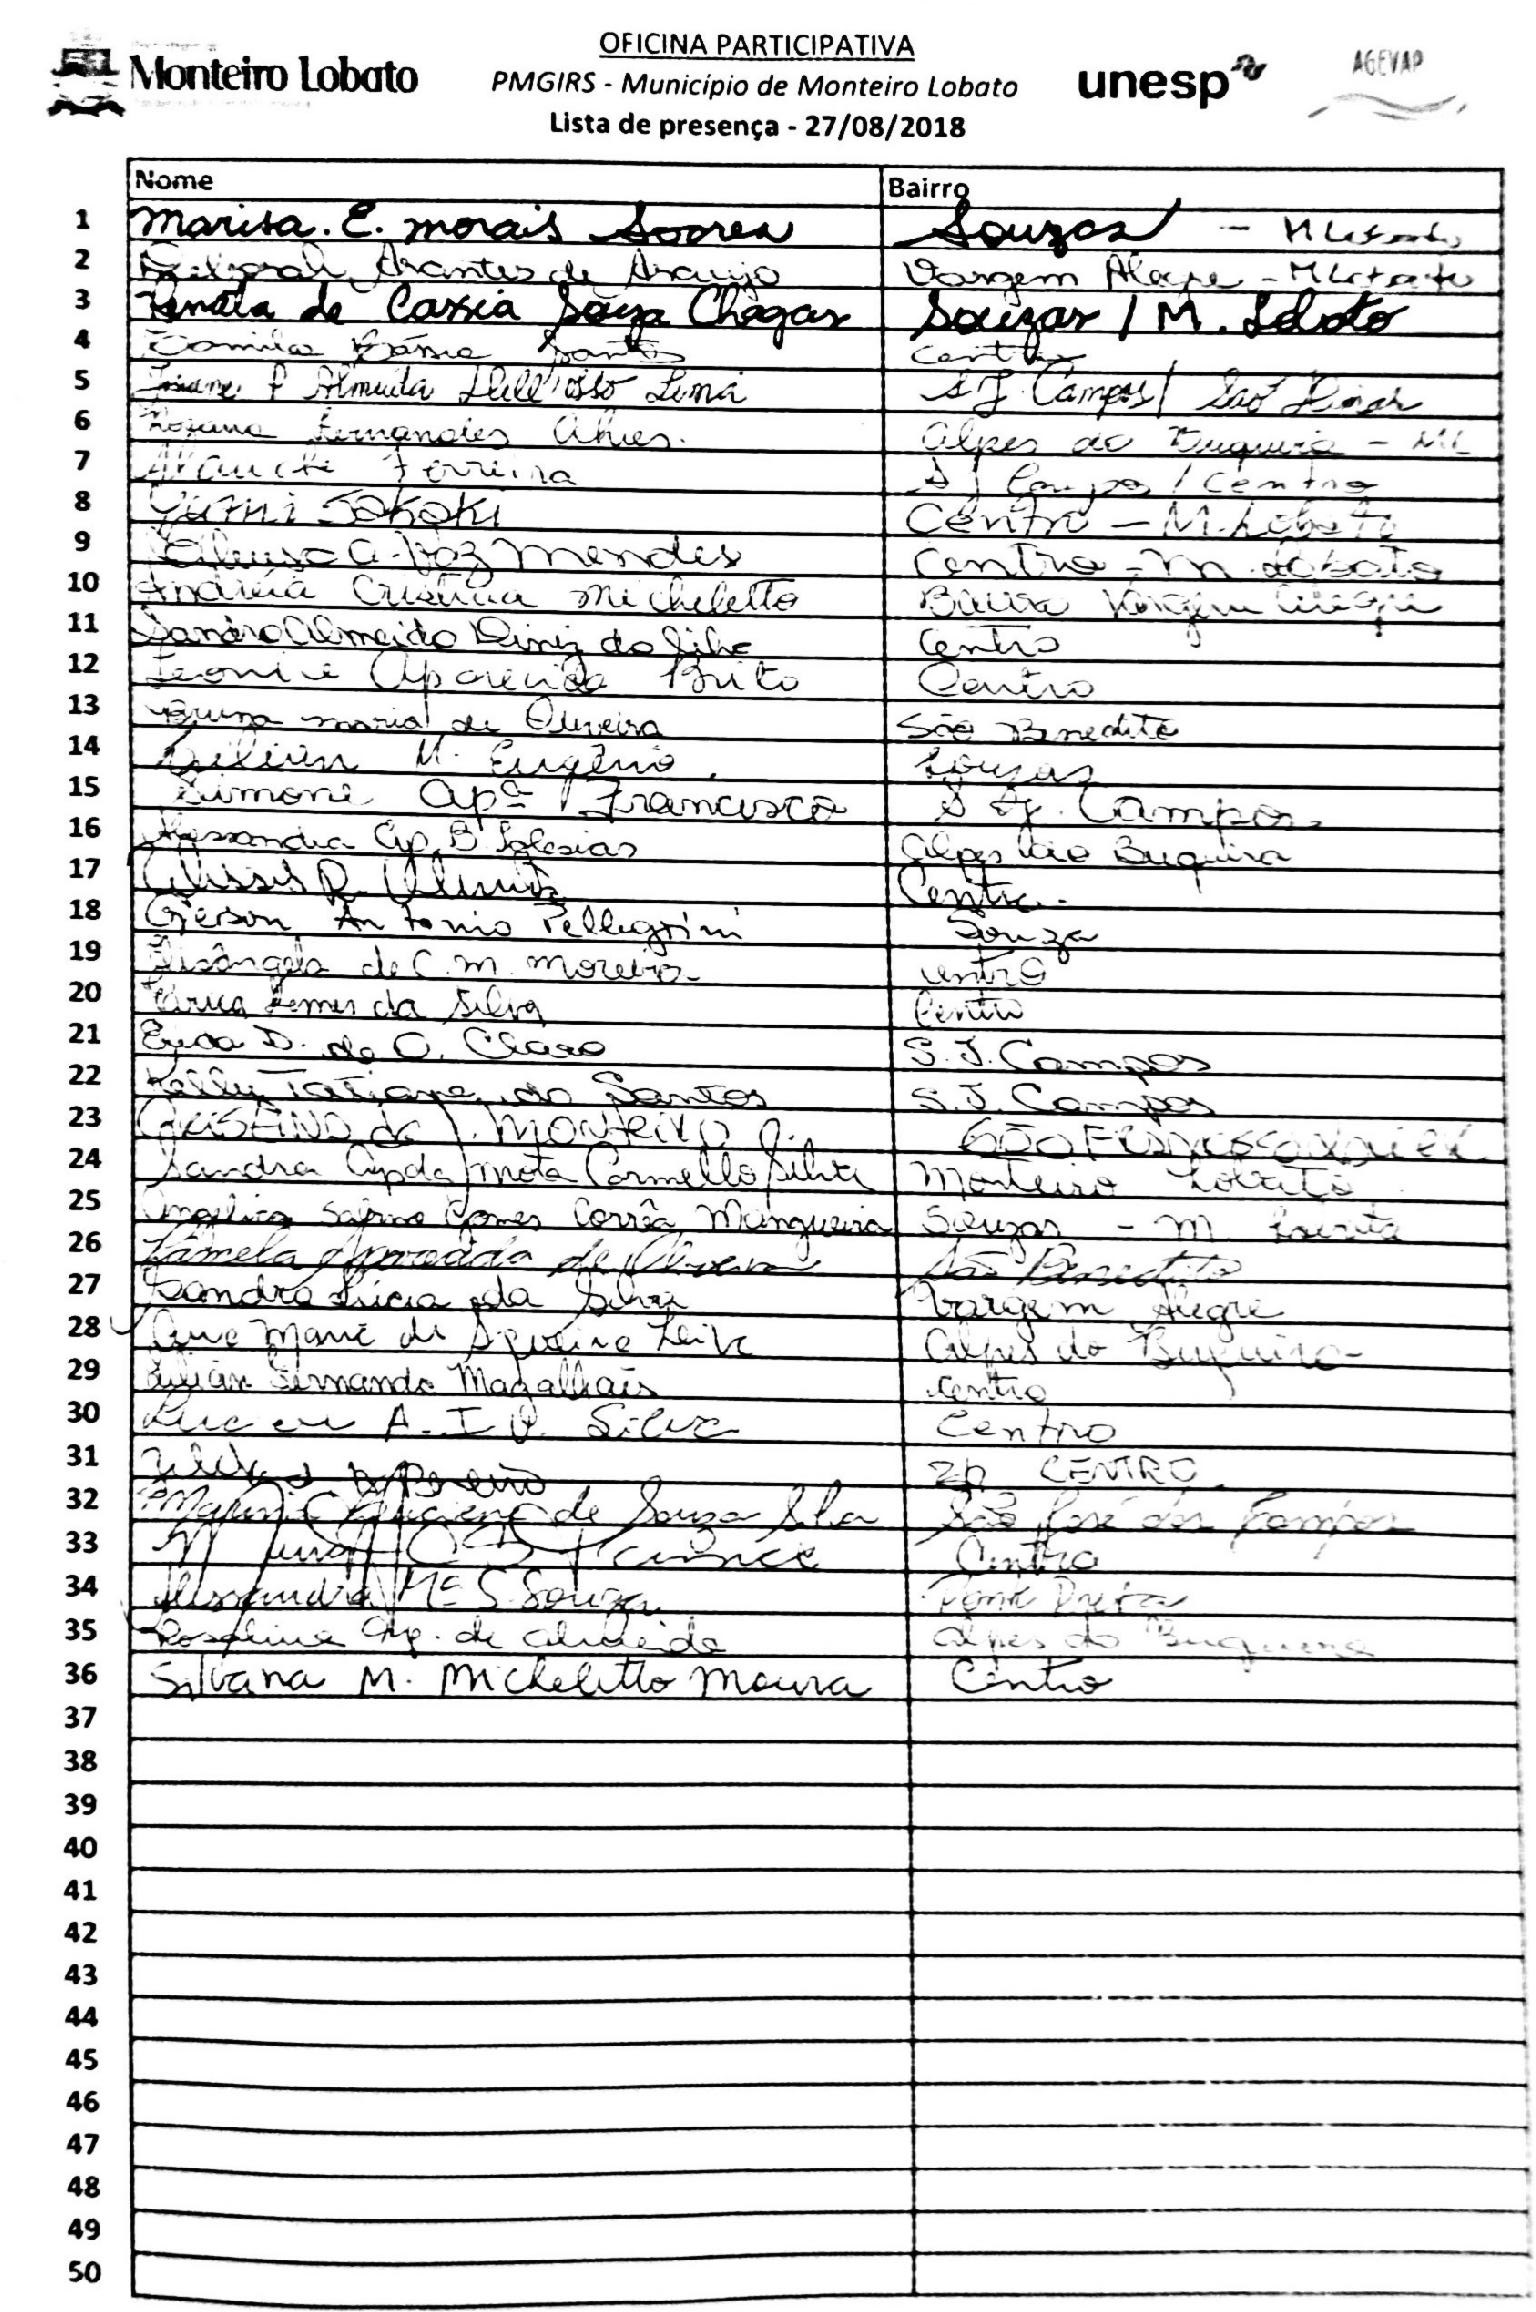 Monteiro Lobato
OFICINA PARTICIPATIVA
PMGIRS - Município de Monteiro Lobato
Lista de presença - 27/08/2018
unesp
AGEVAP
Nome Bairro
1 Marisa. E. morais Soares Souzas - M Lobato
2 Deborah Arantes de Araujo Vargem Alegre - M Lobato
3 Renata de Cassia Souza Chagas Souzas / M. Lobato
4 Santos Centro
5 Josiane P Almeida Dell'Osso Lima S J Campos / São
6 Fernandes Alves. Alpes do Buquira - ML
7 Ferreira S J Campos / Centro
8 Yumi Centro - M. Lobato
9 A. Vaz Mendes Centro - M. Lobato
10 Andréia Cristina Micheletto Bairro Vargem Alegre
11 Sandra Almeida Diniz da Silva Centro
12 Leonice Aparecida Brito Centro
13 Bruna maria de Oliveira São Benedito
14 M. Eugênio. Souzas
15 Simone Apª Francisco S J. Campos.
16 Alessandra Ap. B. Iglesias Alpes do Buquira
17 R. Centro.
18 Gerson Antonio Pellegrini Souza
19 Elisângela de C. M. Moreira Centro
20 Lemes da Silva Centro
21 D. de O. Claro S. J. Campos
22 Kelly Tatiane dos Santos S. J. Campos
23 MONTEIRO
24 Sandra Apda Mota Carmello Silva Monteiro Lobato
25 Angelica Gomes Corrêa Mangueira Souzas - M. Lobato
26 Pamela Aparecida de Oliveira São Benedito
27 Sandra Lúcia da Silva Vargem Alegre
28 Alpes do Buquira
29 Lilian Fernanda Magalhães Centro
30 A. I. P. Silva Centro
31 CENTRO
32 de Souza Silva São José dos Campos
33 Centro
34 Alessandra Mª S. Souza Preta
35 Roseline Ap. de Almeida Alpes do Buquira
36 Silvana M. Micheletto Moura Centro
37
38
39
40
41
42
43
44
45
46
47
48
49
50